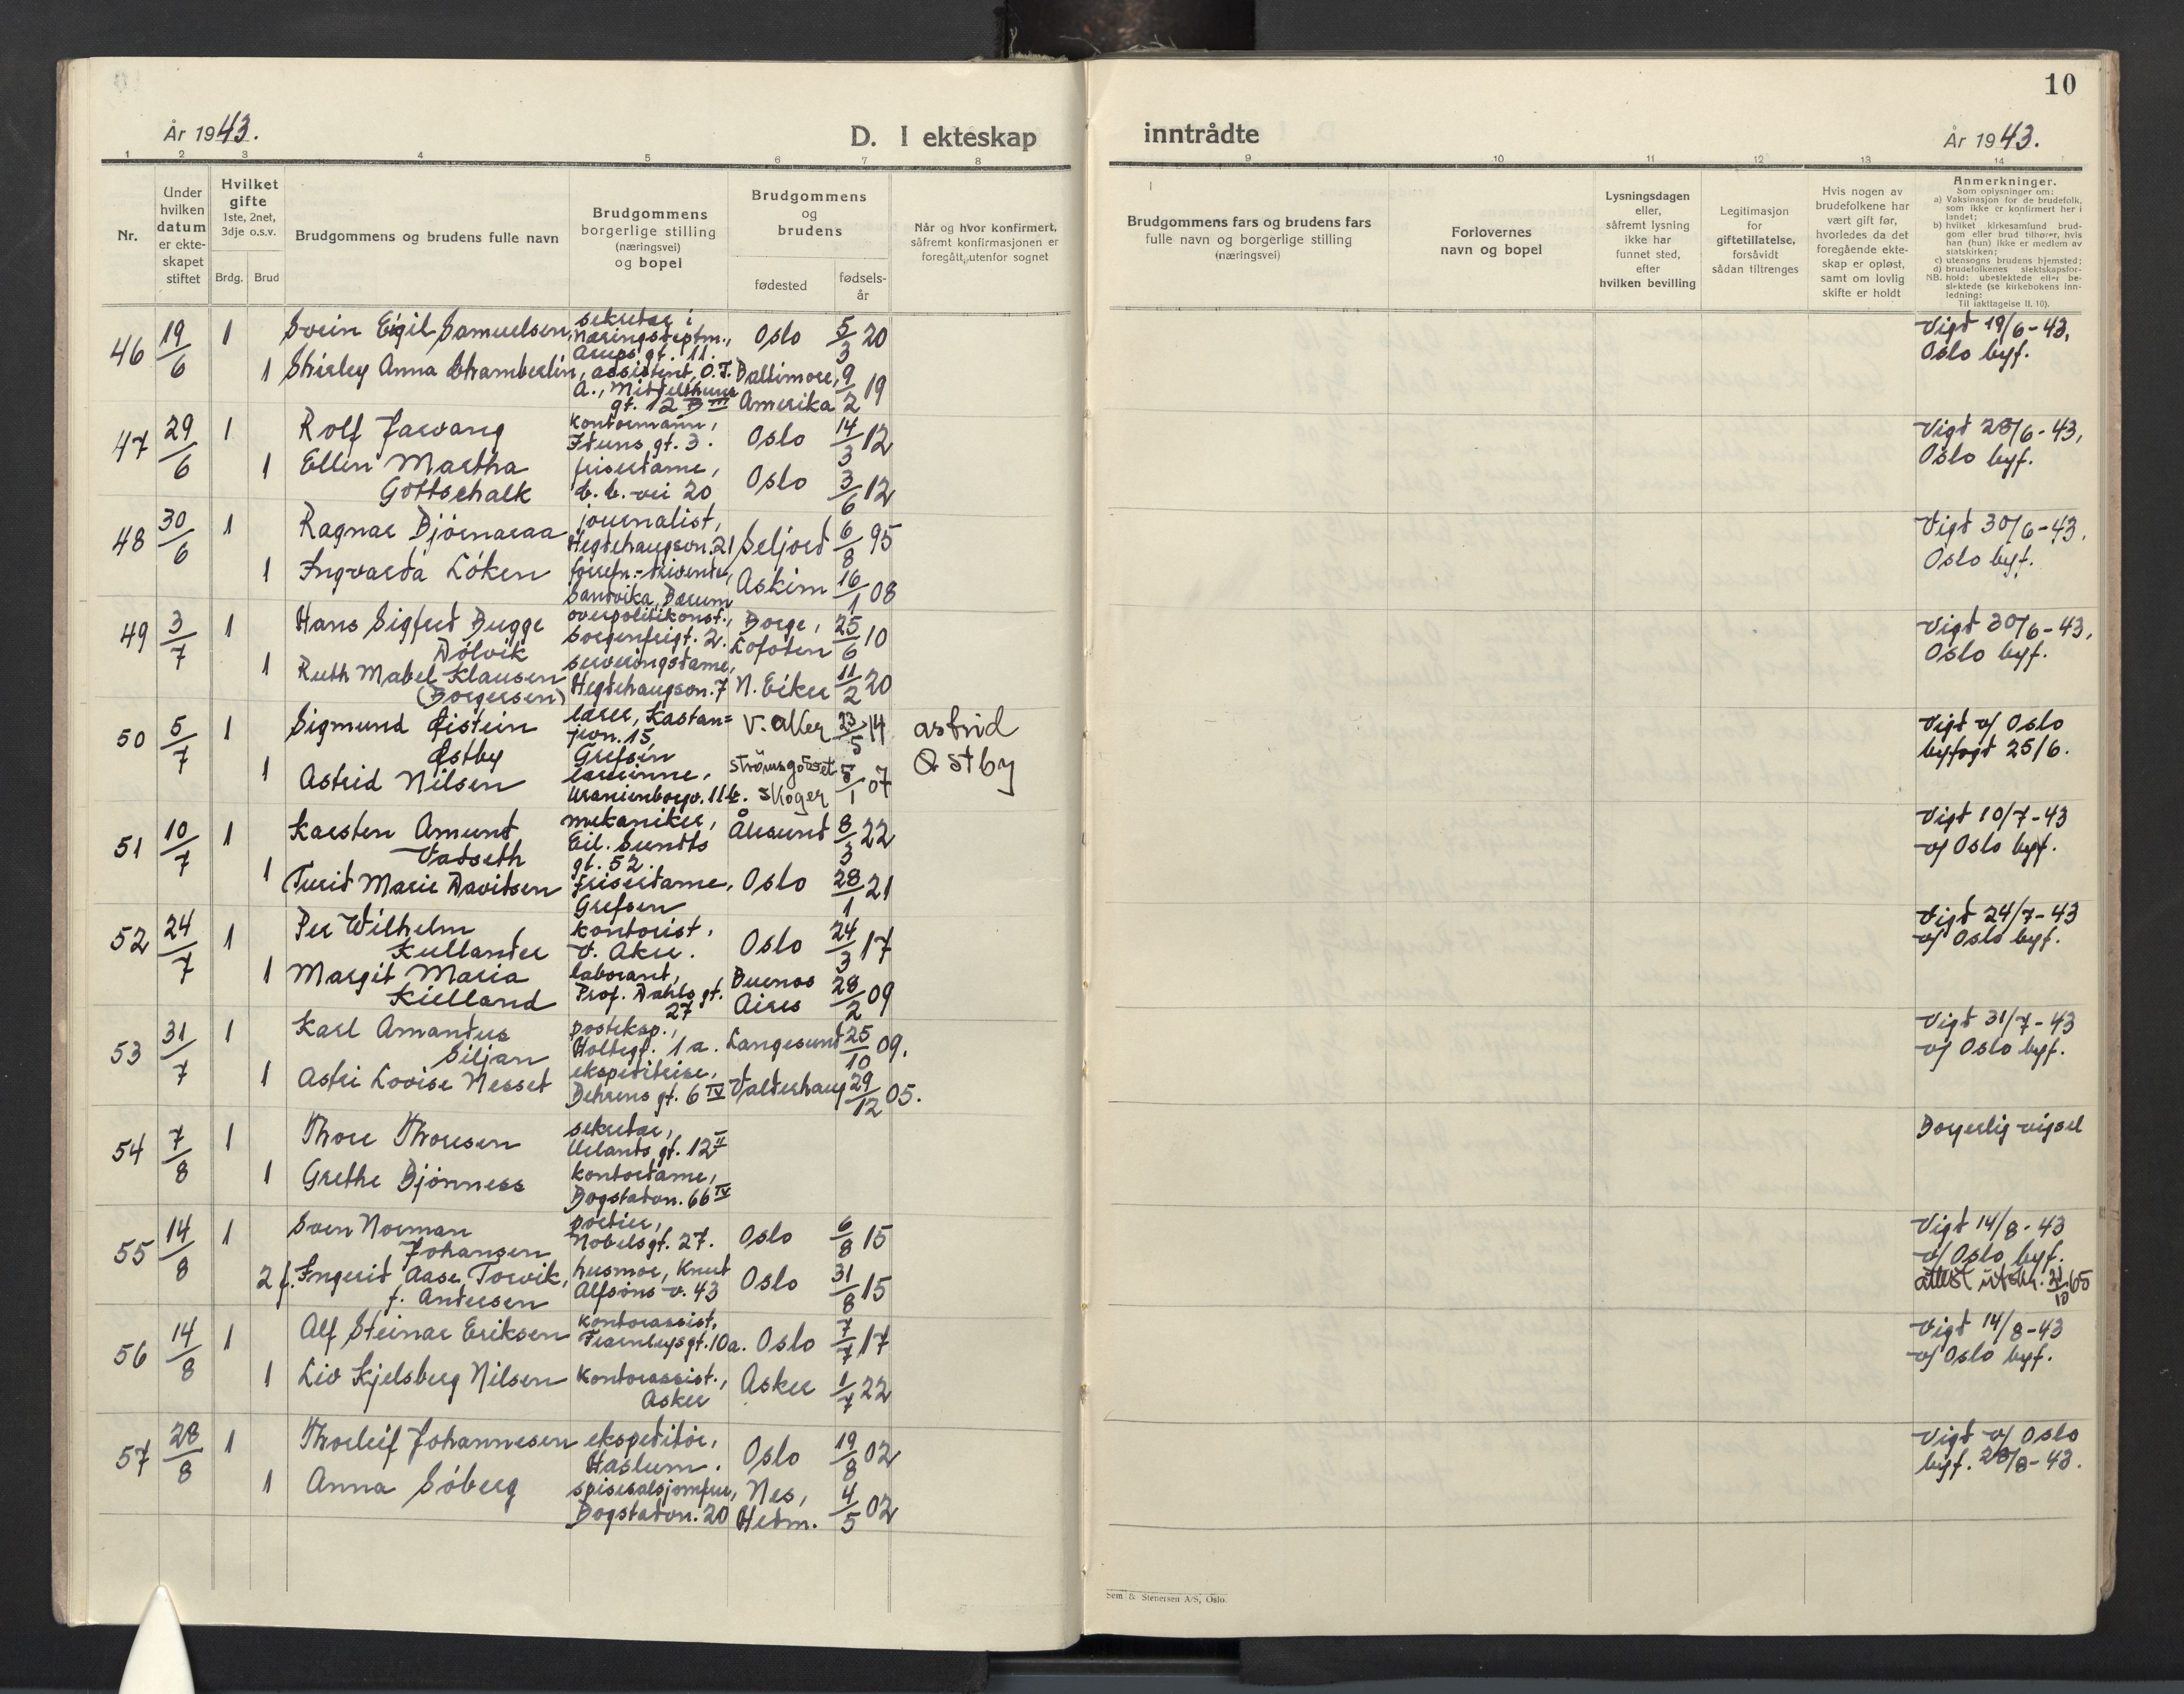 10
År 1943.
D. I ekteskap
inntrådte
År 1943.
1 2 3 4 5 6 7 8 9 10 11 12 13 14
Nr.
Under
hvilken
datum
er ekte-
skapet
stiftet
Hvilket
gifte
1ste, 2net,
3dje o.s.v.
Brdg. Brud
Brudgommens og brudens fulle navn
Brudgommens
borgerlige stilling
(næringsvei)
og bopel
Brudgommens
og
brudens
fødested
fødsels-
år
Når og hvor konfirmert,
såfremt konfirmasjonen er
foregått utenfor sognet
Brudgommens fars og brudens fars
fulle navn og borgerlige stilling
(næringsvei)
Forlovernes
navn og bopel
Lysningsdagen
eller,
såfremt lysning
ikke har
funnet sted,
efter
hvilken bevilling
Legitimasjon
for
giftetillatelse,
forsåvidt
sådan tiltrenges
Hvis nogen av
brudefolkene har
vært gift før,
hvorledes da det
foregående ekte-
skap er opløst,
samt om lovlig
skifte er holdt
Anmerkninger.
Som oplysninger om:
a) Vaksinasjon for de brudefolk,
som ikke er konfirmert her i
landet;
b) hvilket kirkesamfund brud-
gom eller brud tilhører, hvis
han (hun) ikke er medlem av
statskirken;
c) utensogns brudens hjemsted;
d) brudefolkenes slektskapsfor-
NB. hold: ubeslektede eller be-
slektede (se kirkebokens inn-
ledning:
Til iakttagelse II. 10).
46 19/6 1 Svein Egil Samuelsen, sekretær i
Næringsdeptm.,
Arups gt. 11. Oslo 5/3 20
Vigd 19/6-43,
Oslo byf.
1 Shirley Anna Chamberlin, assistent, O.T.
A., Middelthuns
gt. 12 B III Baltimore,
Amerika 9/2 19
47 29/6 1 Rolf Jarvang kontormann,
Iduns gt. 3. Oslo 14/3 12
Vigd 28/6-43,
Oslo byf.
1 Ellen Martha
Gottschalk friserdame,
b.b. vei 20 Oslo 3/6 12
48 30/6 1 Ragnar Bjørnaraa journalist,
Hegdehaugsvn. 21 Seljord 6/8 95
Vigd 30/6-43,
Oslo byf.
1 Ingvarda Löken forretn.-drivende,
Sandvika, Bærum Askim 16/1 08
49 3/7 1 Hans Sigfred Bugge
Dølvik overpolitikonst.,
Sorgenfrigt. 2. Borge,
Lofoten 25/6 10
Vigd 30/6-43,
Oslo byf.
1 Ruth Mabel Klausen
(Borgersen) serveringsdame,
Hegdehaugsvn. 7 N. Eiker 11/2 20
50 5/7 1 Sigmund Øistein
Østby lærer, Kastan=
jevn. 15,
Grefsen V. Aker 23/5 14 Astrid
Østby
Vigd v/ Oslo
byfogd 25/6.
1 Astrid Nilsen lærerinne,
Uranienborgv. 11 b. Strömsgodset
Skoger 5/1 07
51 10/7 1 Karsten Amund
Vadseth mekaniker,
Eil. Sundts
gt. 52. Ålesund 8/3 22
Vigd 10/7-43
v/ Oslo byf.
1 Turid Marie Davidsen friserdame,
Grefsen Oslo 28/1 21
52 24/7 1 Per Wilhelm
Kullander kontorist,
V. Aker. Oslo 24/3 17
Vigd 24/7-43
v/ Oslo byf.
1 Margit Maria
Kielland laborant,
Prof. Dahls gt.
27 Buenos
Aires 28/2 09
53 31/7 1 Karl Amandus
Siljan posteksp.,
Holtegt. 1 a. Langesund 25/10 09.
Vigd 31/7-43
v/ Oslo byf.
1 Astri Lovise Nesset ekspeditrise,
Behrens gt. 6 IV Valderhaug 29/12 05.
54 7/8 1 Thore Thoresen sekretær,
Uelands gt. 12 II
Borgerlig vigsel
1 Grethe Bjönness kontordame,
Bogstadvn. 66 IV
55 14/8 1 Sven Norman
Johansen portier,
Nobelsgt. 27. Oslo 6/8 15
Vigd 14/8-43
v/ Oslo byf.
attest utskr. 31/10 65
2 f. Ingerid Aase Torvik,
f. Andersen husmor, Knud
Alfsöns v. 43 Oslo 31/8 15
56 14/8 1 Alf Steinar Eriksen kontorassist,
Fearnleysgt. 10 a. Oslo 7/7 17
Vigd 14/8-43
v/ Oslo byf.
1 Liv Kjelsberg Nilsen kontorassist.,
Asker Asker 1/7 22
57 28/8 1 Thorleif Johannesen ekspeditör,
Haslum. Oslo 19/8 02
Vigd v/ Oslo
byf. 28/8-43.
1 Anna Söberg spisesalsjomfru,
Bogstadvn. 20 Nes,
Hedm. 4/5 02
Sem & Stenersen A/S, Oslo.